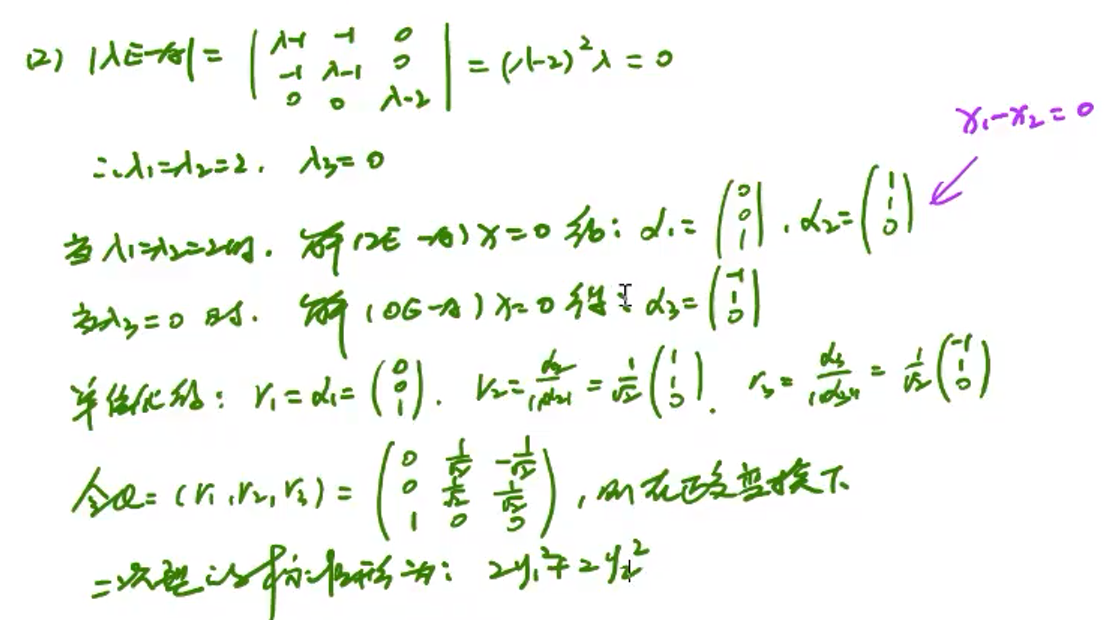 (2) |λE-A| = | λ-1 -1 0 ; -1 λ-1 0 ; 0 0 λ-2 | = (λ-2)²λ = 0
x₁-x₂=0
∴ λ₁=λ₂=2. λ₃=0
当λ₁=λ₂=2时. 解(2E-A)x=0得: α₁= (0 0 1) . α₂= (1 1 0)
当λ₃=0时. 解(0E-A)x=0得: α₃= (-1 1 0)
单位化得: r₁=α₁= (0 0 1) . r₂= α₂/||α₂|| = 1/√2 (1 1 0) . r₃= α₃/||α₃|| = 1/√2 (-1 1 0)
令Q=(r₁,r₂,r₃)= (0 1/√2 -1/√2 ; 0 1/√2 1/√2 ; 1 0 0) , 则在正交变换下
二次型的标准形为: 2y₁²+2y₂²